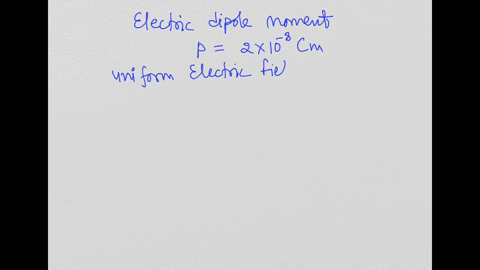 Electric dipole moment
P = 2×10⁻⁸ Cm
uniform Electric fie